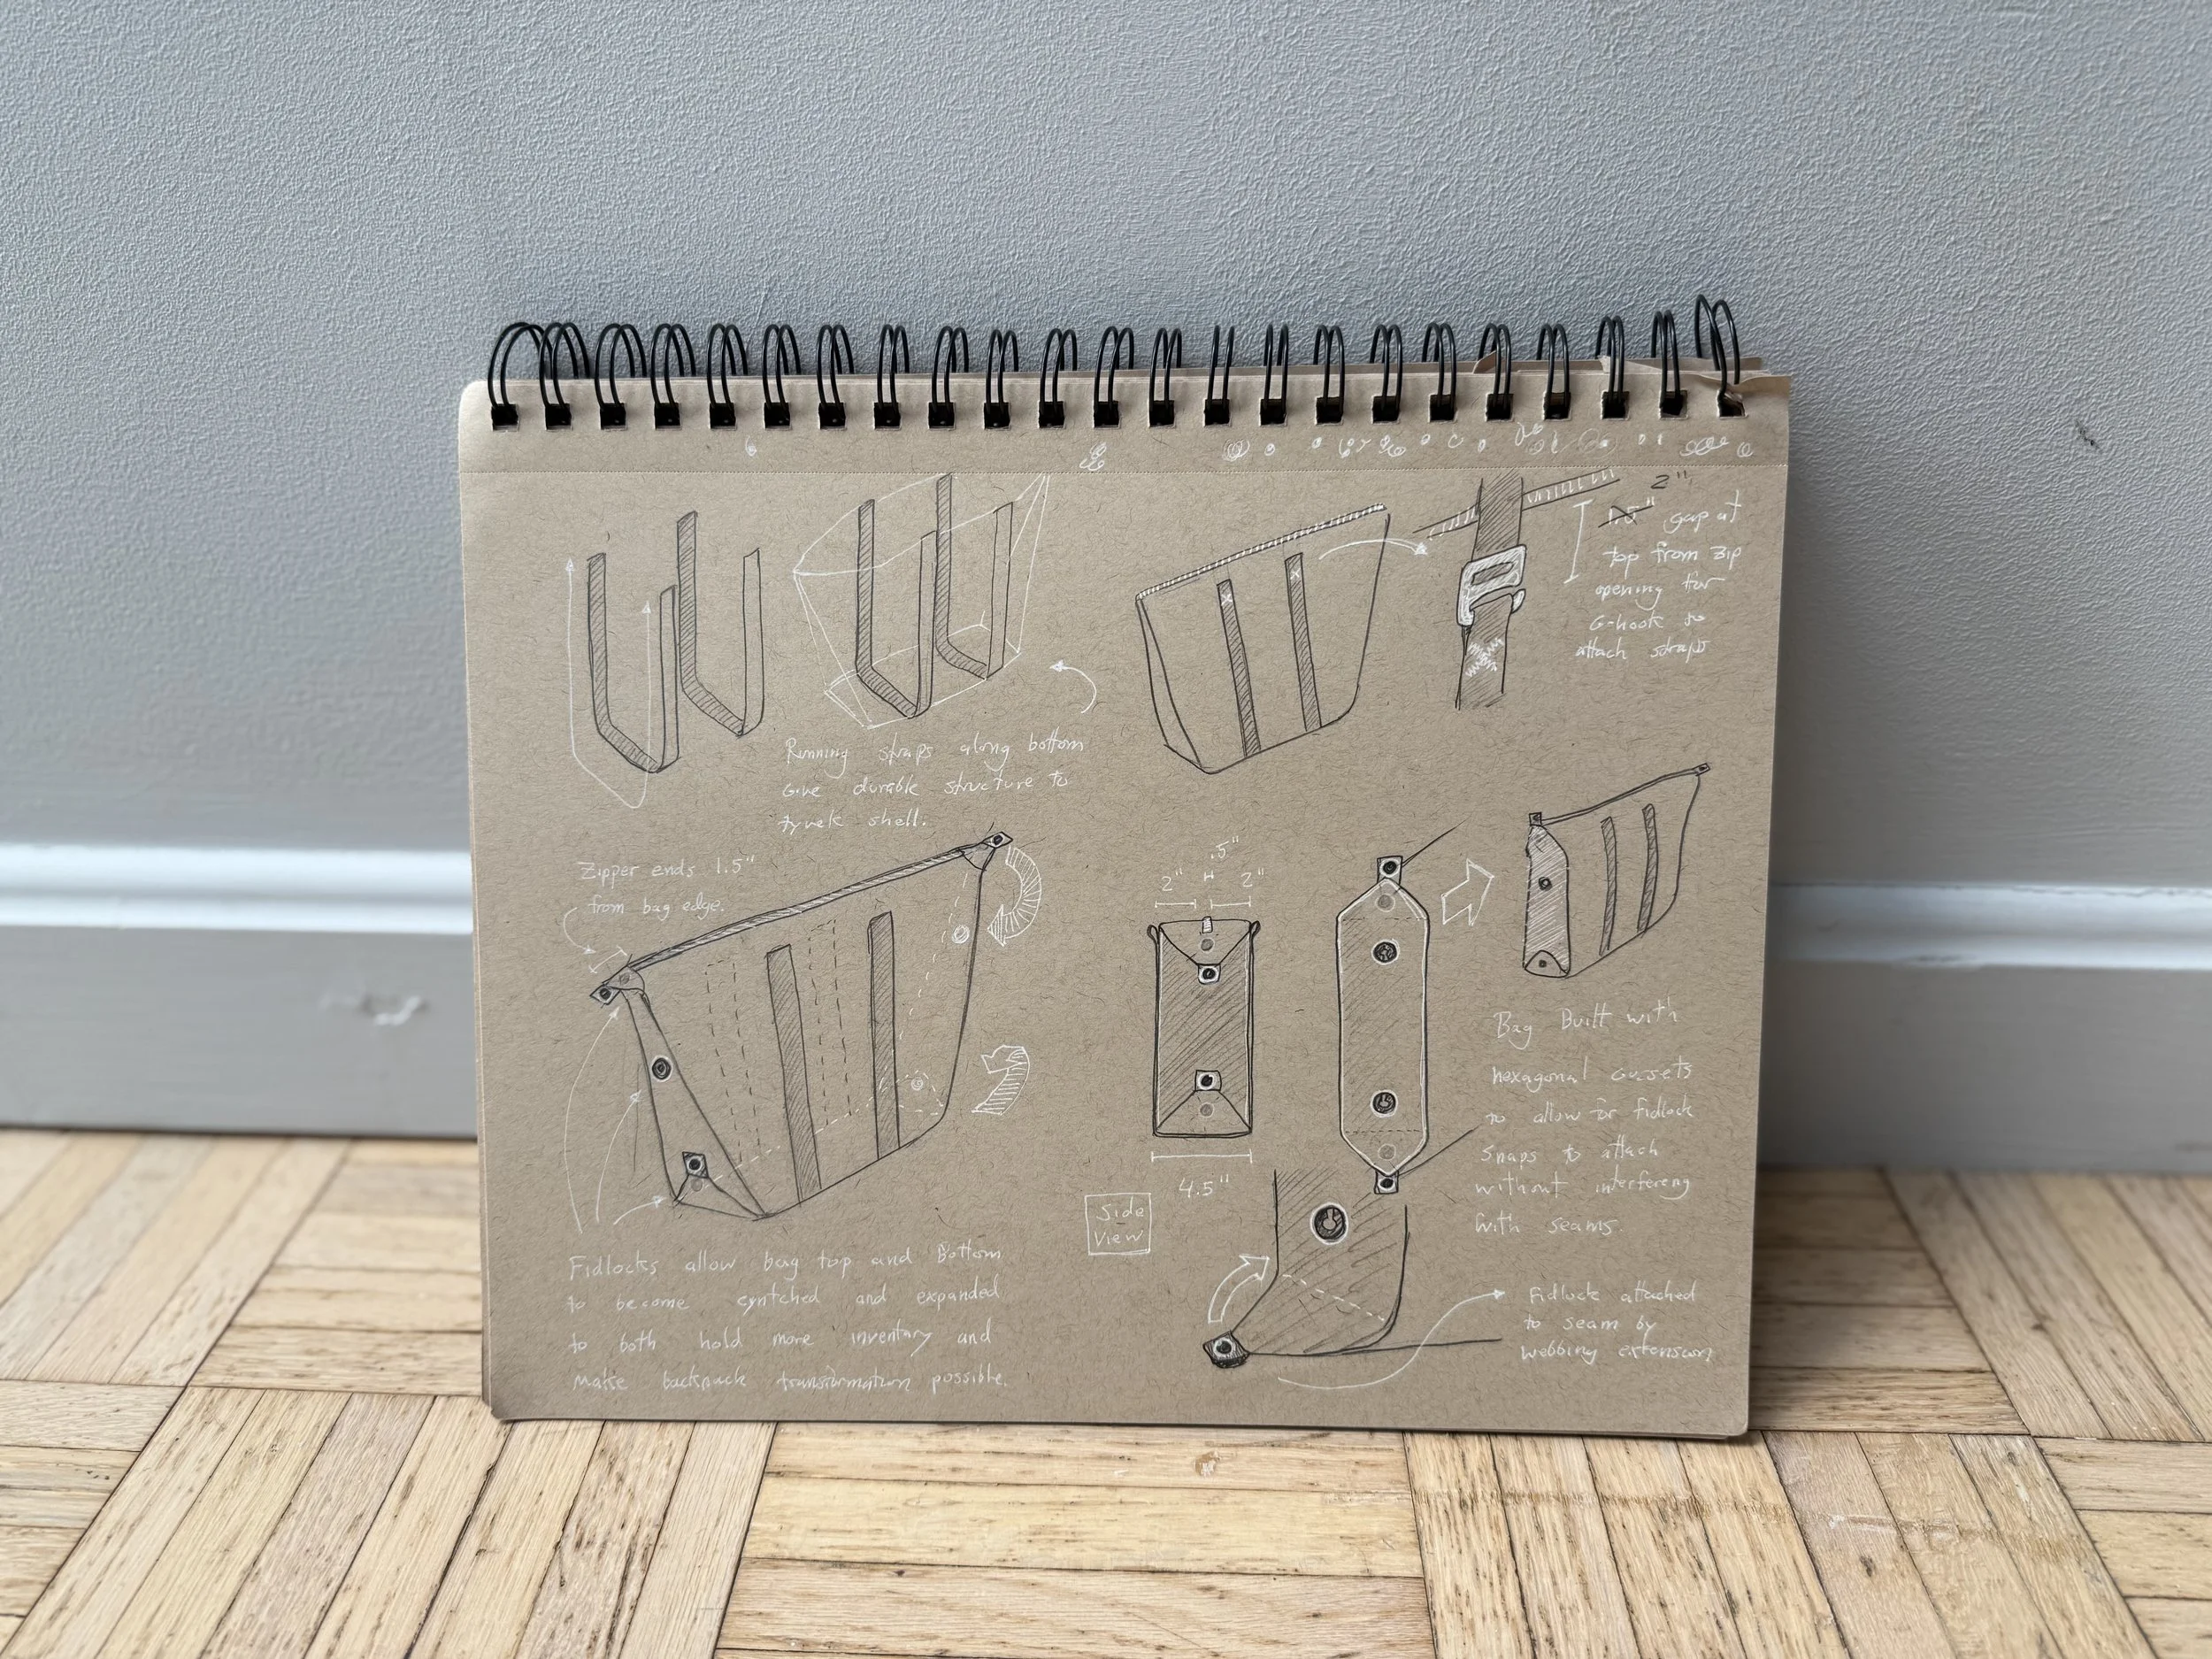 2"
1.5" gap at
top from zip
opening for
G-hook to
attach straps
Running straps along bottom
Give durable structure to
tyvek shell.
Zipper ends 1.5"
from bag edge.
.5"
2" 2"
4.5"
Side
View
Bag Built with
hexagonal Gussets
to allow for fidlock
Snaps to attach
without interfereng
with seams.
Fidlocks allow bag top and Bottom
to become cyntched and expanded
to both hold more inventory and
make backpack transformation possible.
Fidlock attached
to seam by
webbing extension